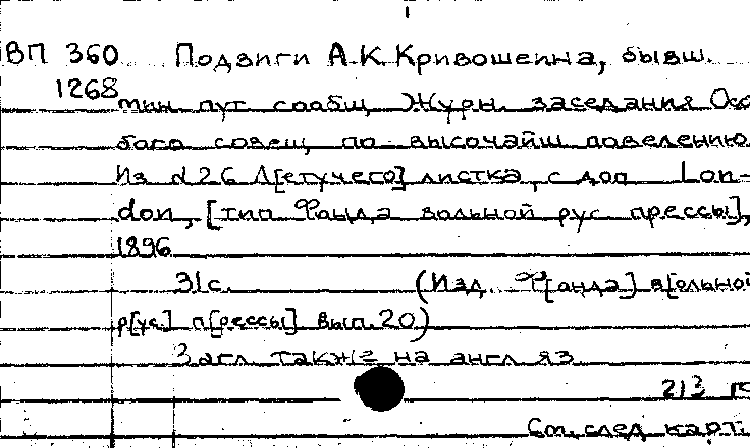 ВП 360 Подвиги А.К. Кривошеина, бывш.
1268 мин. пут. сообщ. Журн. заседания Осо
бого совещ. по высочайш. повелению.
Из №26 Л[етучего] листка, с доп. Lon-
don, [тип. Фонда вольной рус. прессы],
1896.
31с. (Изд. Ф[онда] в[ольной
р[ус.] п[рессы]. Вып.20)
Загл. также на англ. яз.
213
См. след. карт.